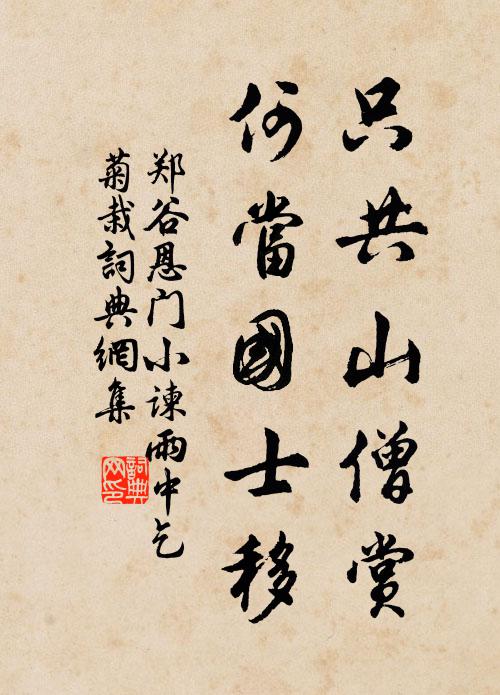 只共山僧赏
何當國士移
郑谷恩门小谏雨中乞
菊栽詞典網集
詞典
网印